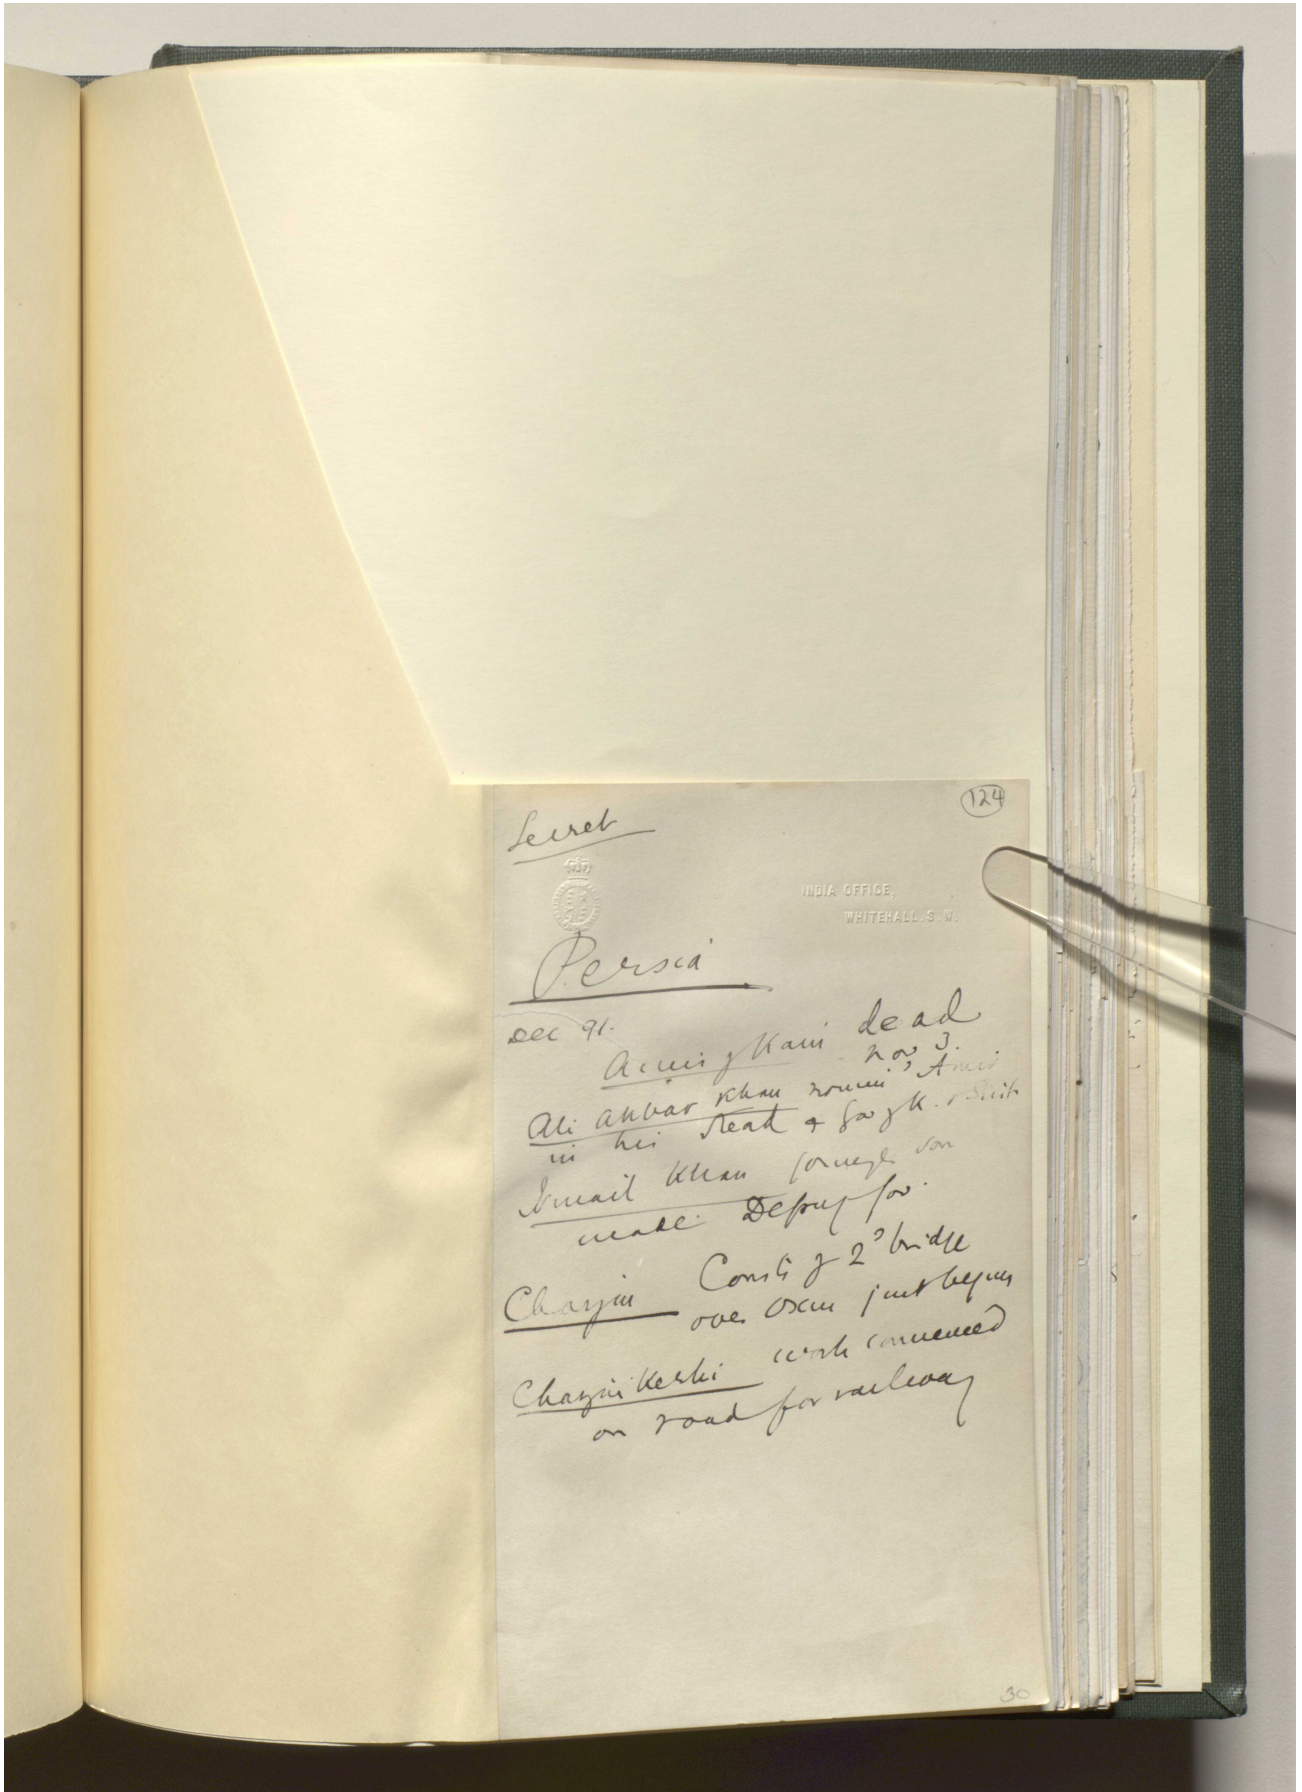 124
Secret
INDIA OFFICE,
WHITEHALL. S. W.
Persia
Dec 91.
Amir of Kain dead
Nov 3.
Ali Akbar Khan nomind Amir
in his stead & Gov of K. & Seist
Ismail Khan son
made Deputy Gov.
Charjui Consti of 2d bridge
over Oxus just begun
Charjui Kerki work commenced
on road for railway
30